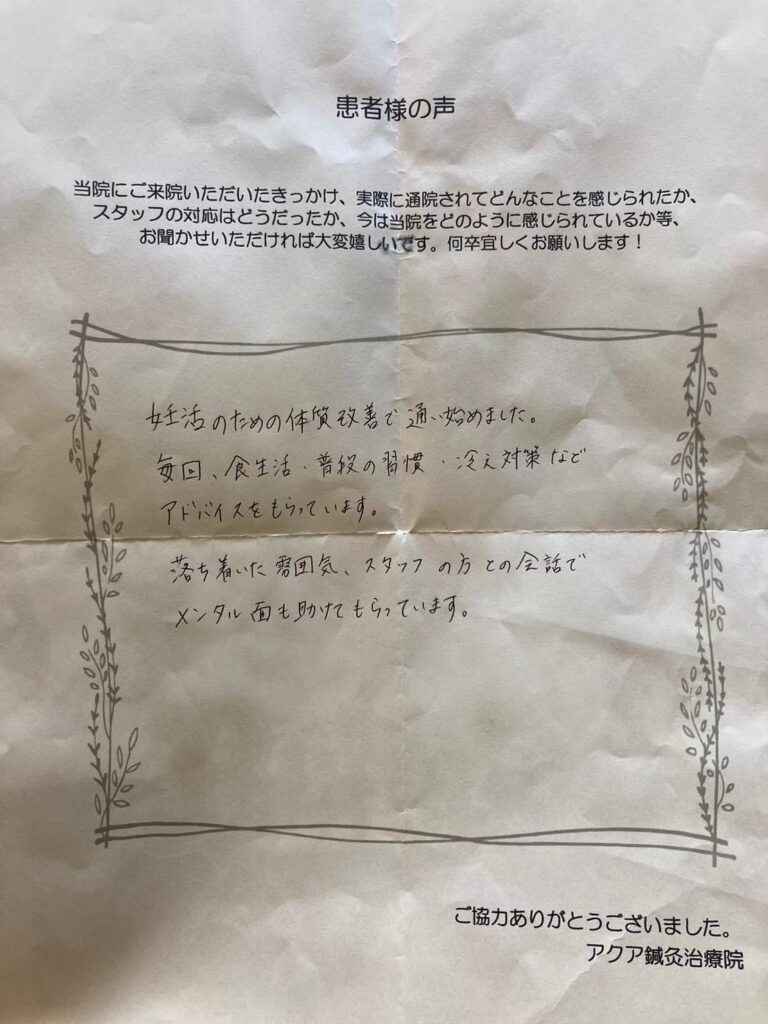 患者様の声
当院にご来院いただいたきっかけ、実際に通院されてどんなことを感じられたか、
スタッフの対応はどうだったか、今は当院をどのように感じられているか等、
お聞かせいただければ大変嬉しいです。何卒宜しくお願いします！
妊活のための体質改善で通い始めました。
毎回、食生活・普段の習慣・冷え対策など
アドバイスをもらっています。
落ち着いた雰囲気、スタッフの方との会話で
メンタル面も助けてもらっています。
ご協力ありがとうございました。
アクア鍼灸治療院